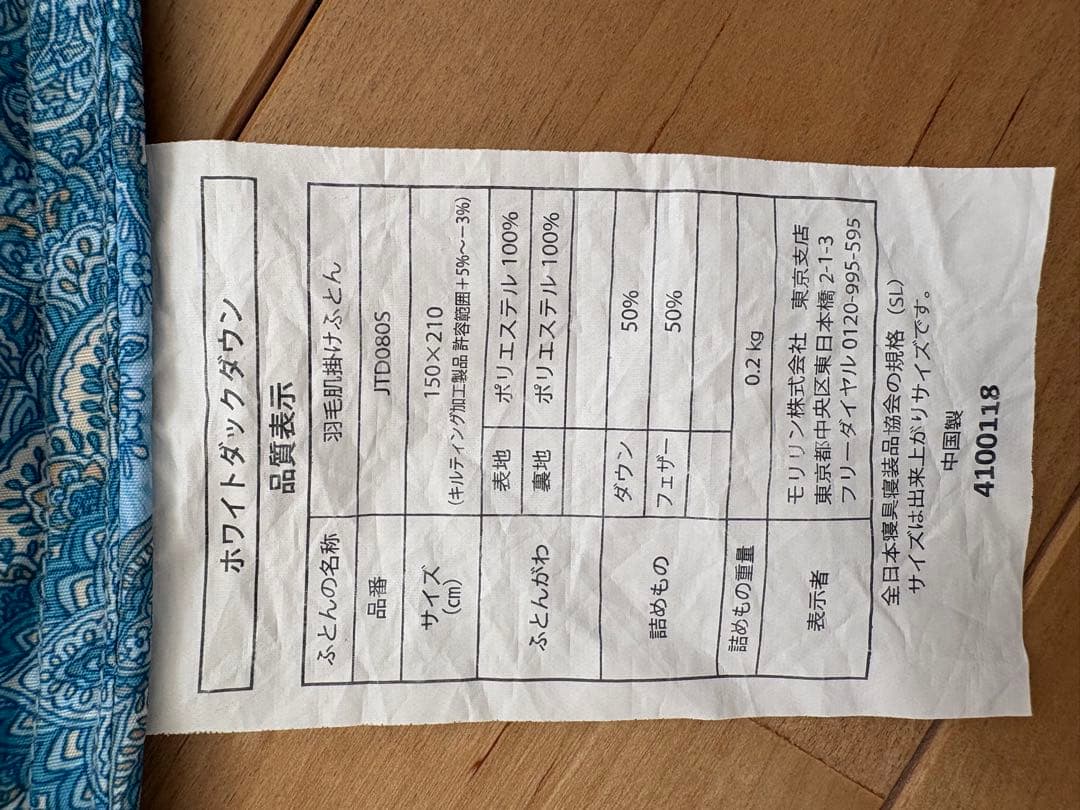 ホワイトダックダウン
品質表示
ふとんの名称 羽毛肌掛けふとん
品番 JTD080S
サイズ(cm) 150×210
(キルティング加工製品 許容範囲+5%~-3%)
ふとんがわ 表地 ポリエステル100%
裏地 ポリエステル100%
詰めもの ダウン 50%
フェザー 50%
詰めものの重量 0.2 kg
表示者 モリリン株式会社 東京支店
東京都中央区東日本橋 2-1-3
フリーダイヤル 0120-995-595
全日本寝具寝装品協会の規格(SL)
サイズは出来上がりサイズです。
中国製
4100118